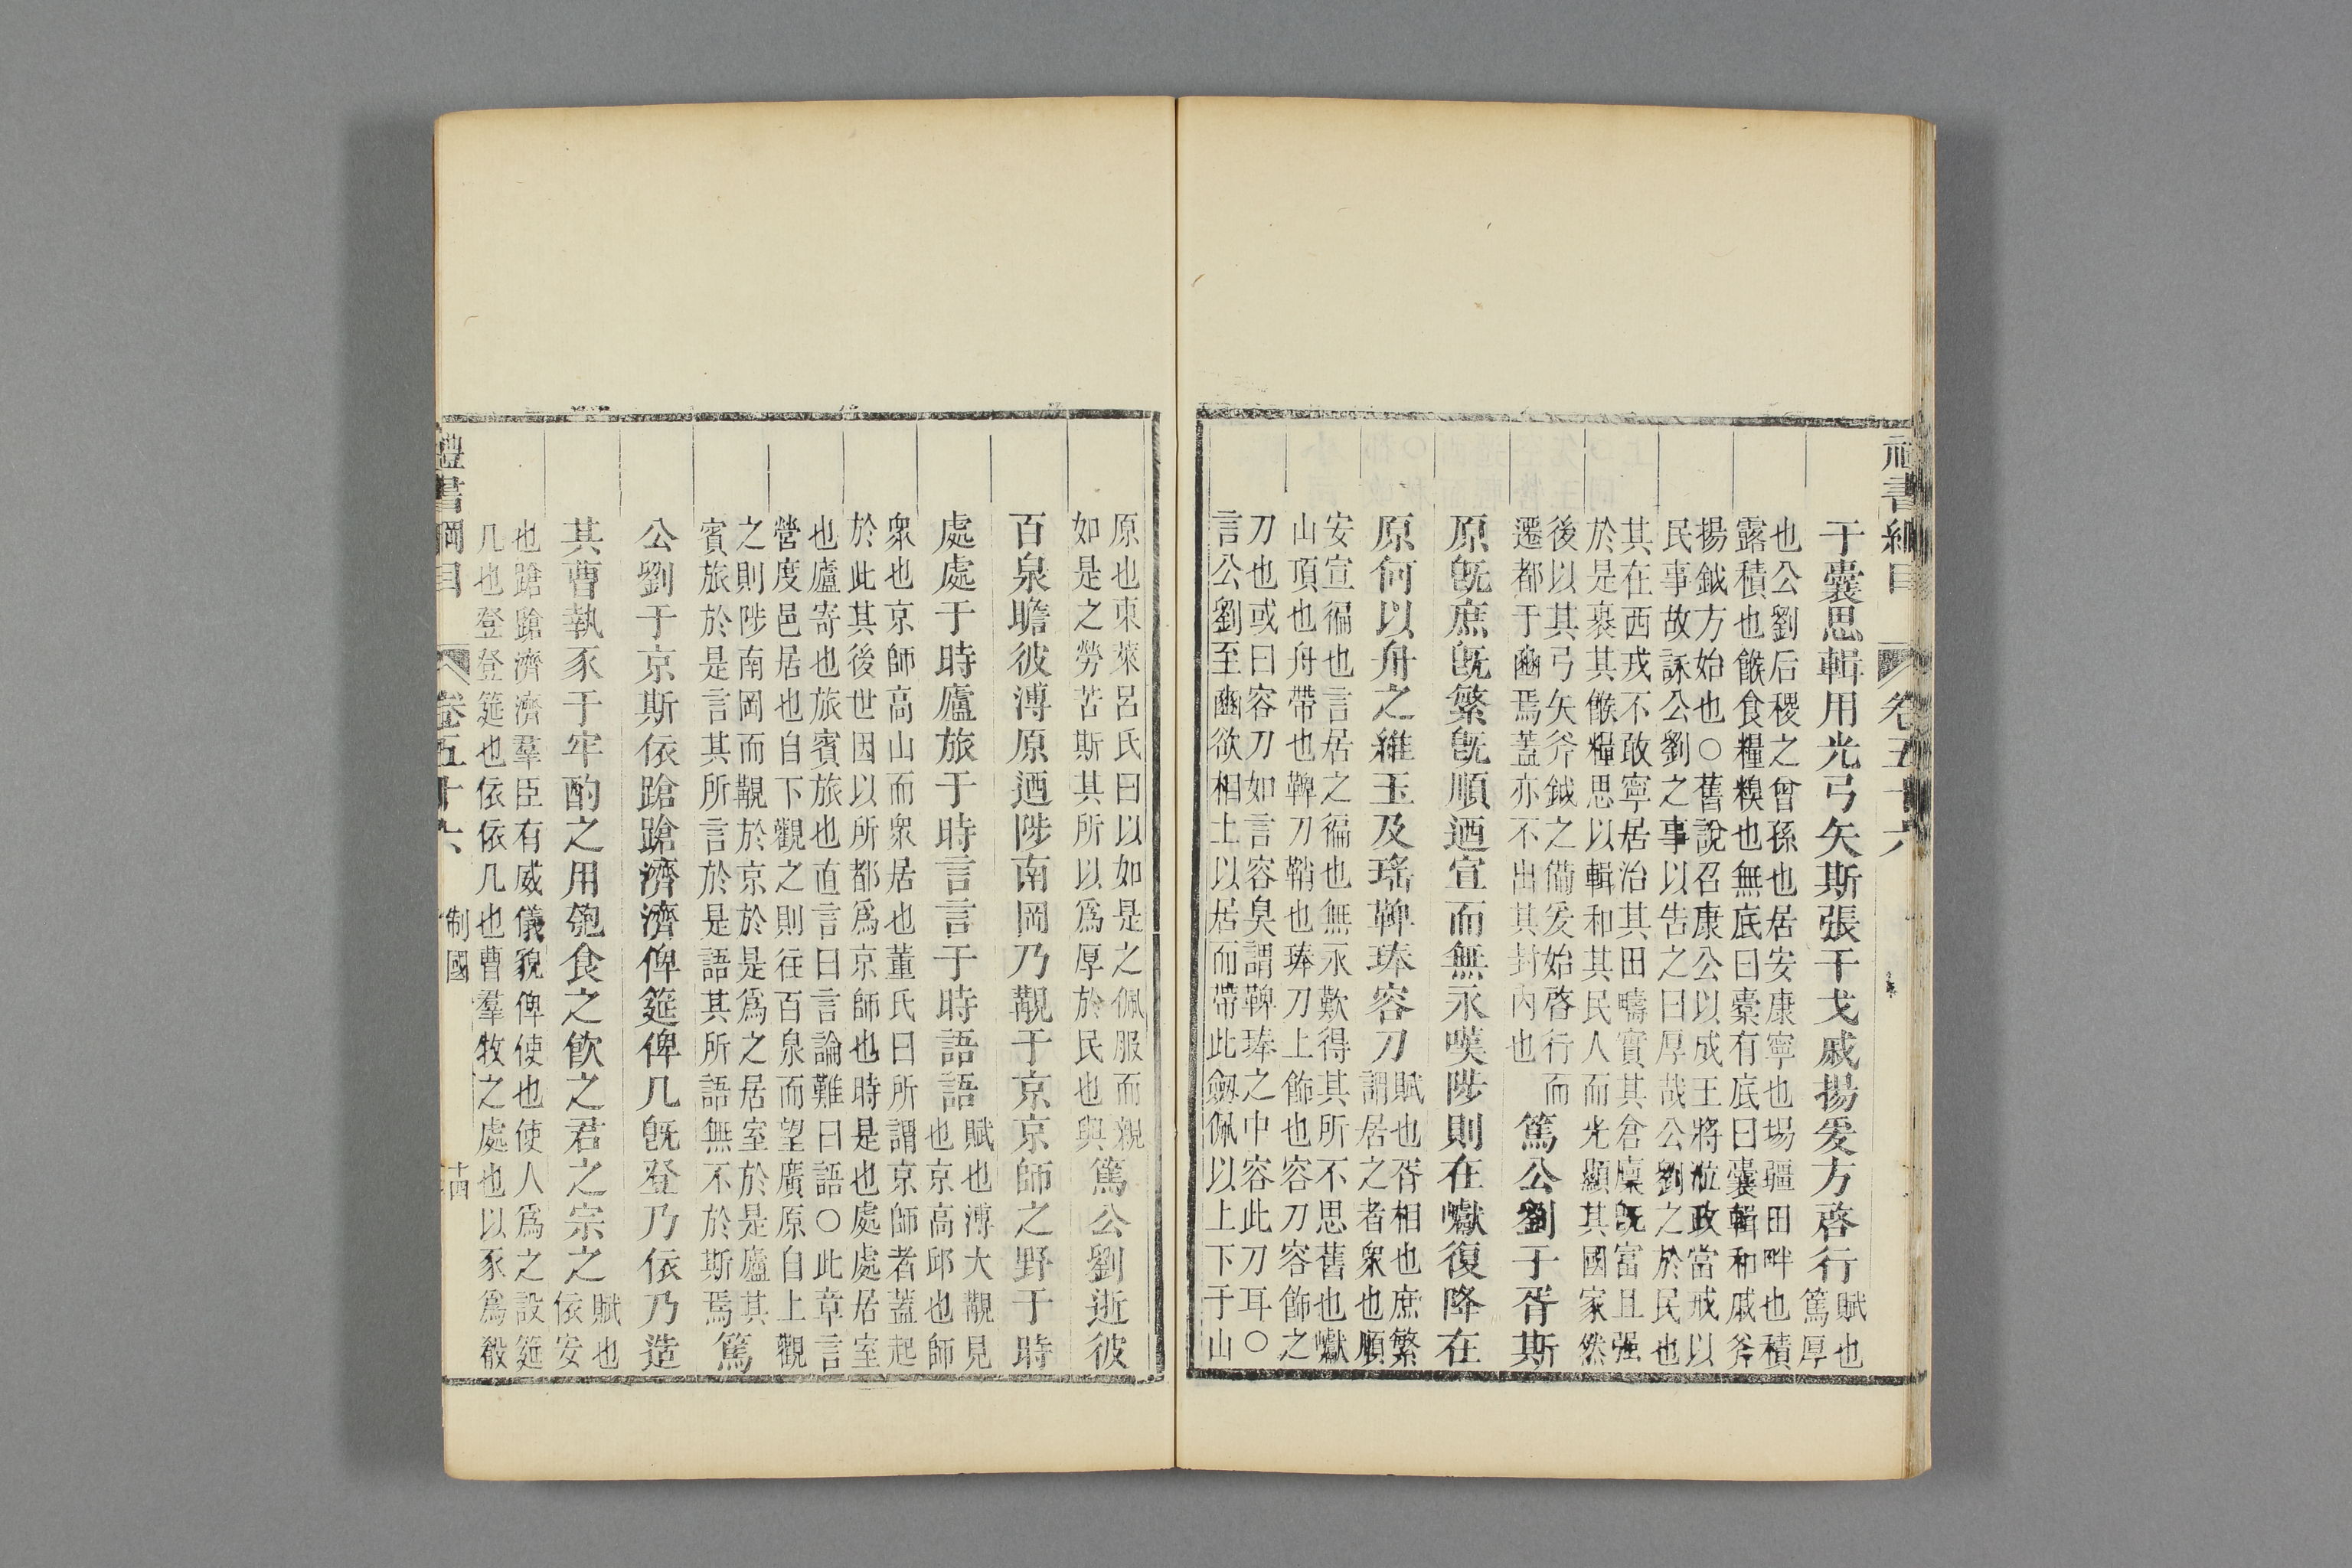 禮書綱目 卷五十六
于囊思輯用光弓矢斯張干戈戚揚爰方啓行
賦也
篤厚
也公劉后稷之曾孫也居安康寧也場疆田畔也積
露積也餱食糧糗也無底曰橐有底曰囊輯和戚斧
揚鉞方始也○舊說召康公以成王將涖政當戒以
民事故詠公劉之事以告之曰厚哉公劉之於民也
其在西戎不敢寧居治其田疇實其倉廩旣富且强
於是裹其餱糧思以輯和其民人而光顯其國家然
後以其弓矢斧鉞之備爰始啓行而
遷都于豳焉蓋亦不出其封內也
篤公劉于胥斯
原旣庶旣繁旣順迺宣而無永嘆陟則在巘復降在
原何以舟之維玉及瑤鞞琫容刀
賦也胥相也庶繁
謂居之者衆也順
安宣徧也言居之徧也無永歎得其所不思舊也巘
山頂也舟帶也鞞刀鞘也琫刀上飾也容刀容飾之
刀也或曰容刀如言容臭謂鞞琫之中容此刀耳○
言公劉至豳欲相土以居而帶此劔佩以上下于山
原也東萊呂氏曰以如是之佩服而親
如是之勞苦斯其所以爲厚於民也與
篤公劉逝彼
百泉瞻彼溥原迺陟南岡乃覯于京京師之野于時
處處于時廬旅于時言言于時語語
賦也溥大覯見
也京高邱也師
衆也京師高山而衆居也董氏曰所謂京師者蓋起
於此其後世因以所都爲京師也時是也處處居室
也廬寄也旅賓旅也直言曰言論難曰語○此章言
營度邑居也自下觀之則往百泉而望廣原自上觀
之則陟南岡而覯於京於是爲之居室於是廬其
賓旅於是言其所言於是語其所語無不於斯焉
篤
公劉于京斯依蹌蹌濟濟俾筵俾几旣登乃依乃造
其曹執豕于牢酌之用匏食之飮之君之宗之
賦也
依安
也蹌蹌濟濟羣臣有威儀貌俾使也使人爲之設筵
几也登登筵也依依几也曹羣牧之處也以豕爲殽
禮書綱目 卷五十六 制國 十四